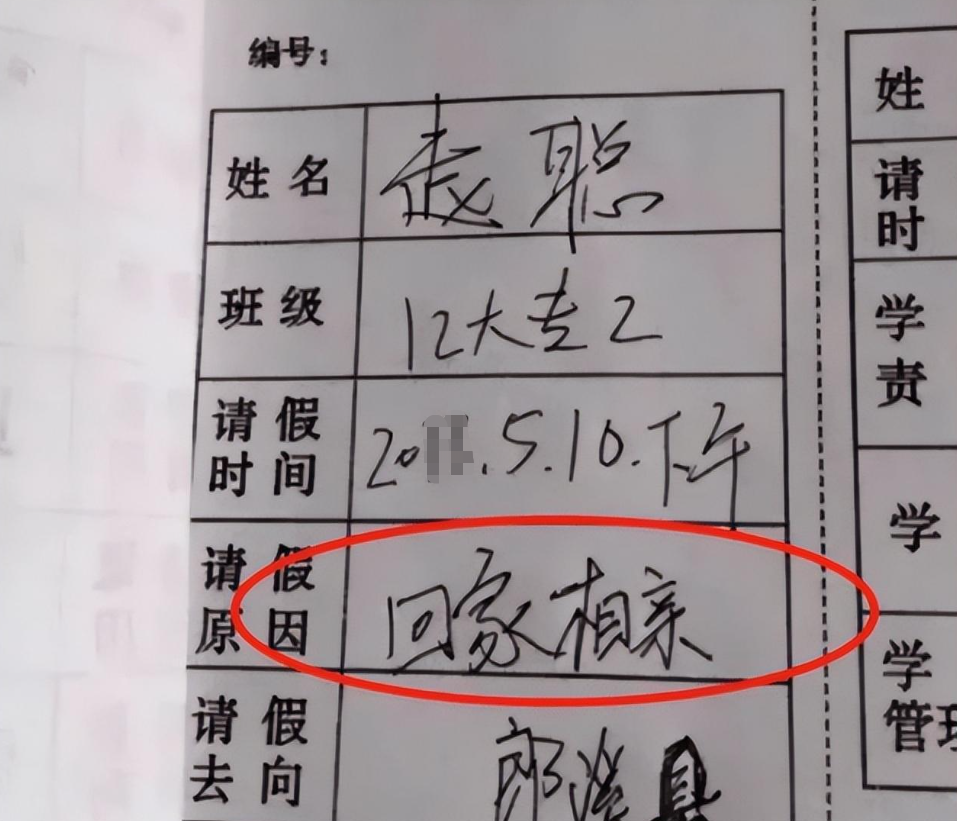 编号：
姓名 赵聪
班级 12大专2
请假时间 20 .5.10.下午
请假原因 回家相亲
请假去向 郎溪县
姓
请
时
学
责
学
学
管理